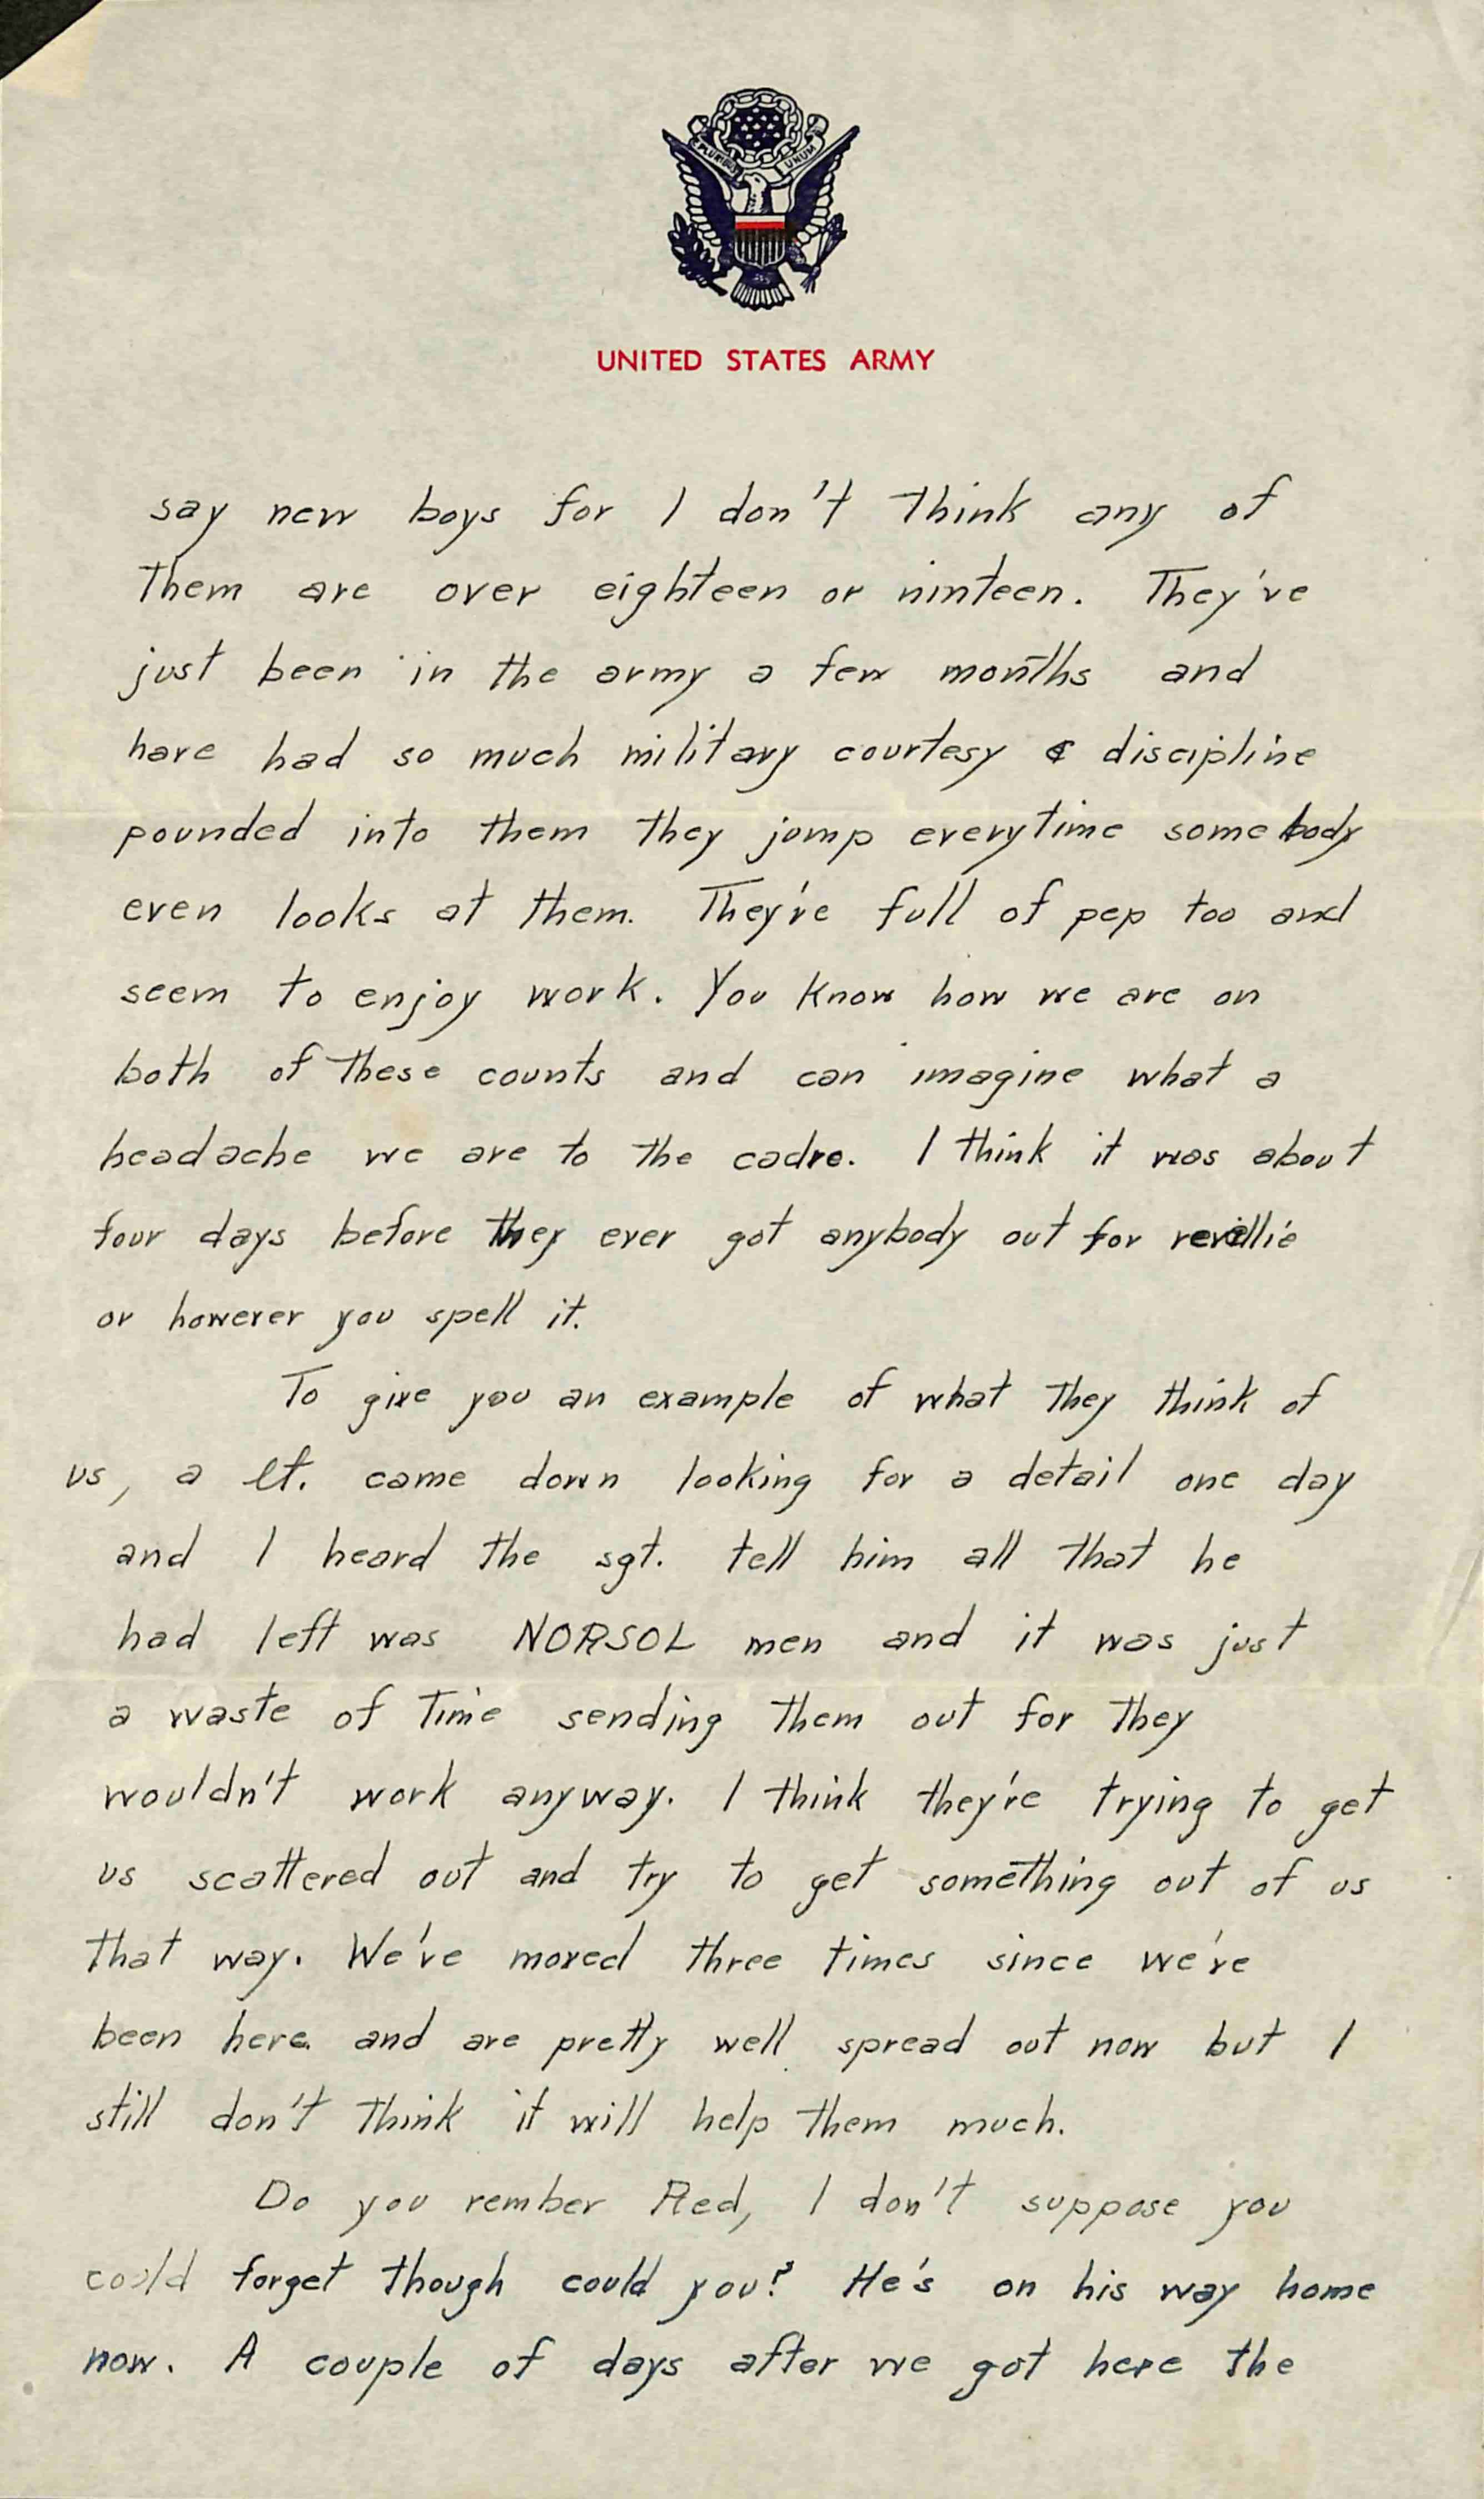 PLURIBUS UNUM
UNITED STATES ARMY
say new boys for I don't think any of
them are over eighteen or ninteen. They've
just been in the army a few months and
have had so much military courtesy & discipline
pounded into them they jump everytime somebody
even looks at them. They're full of pep too and
seem to enjoy work. You know how we are on
both of these counts and can imagine what a
headache we are to the cadre. I think it was about
four days before they ever got anybody out for revillie
or however you spell it.
To give you an example of what they think of
us, a lt. came down looking for a detail one day
and I heard the sgt. tell him all that he
had left was NORSOL men and it was just
a waste of time sending them out for they
wouldn't work anyway. I think they're trying to get
us scattered out and try to get something out of us
that way. We've moved three times since we've
been here and are pretty well spread out now but I
still don't think it will help them much.
Do you rember Red, I don't suppose you
could forget though could you? He's on his way home
now. A couple of days after we got here the